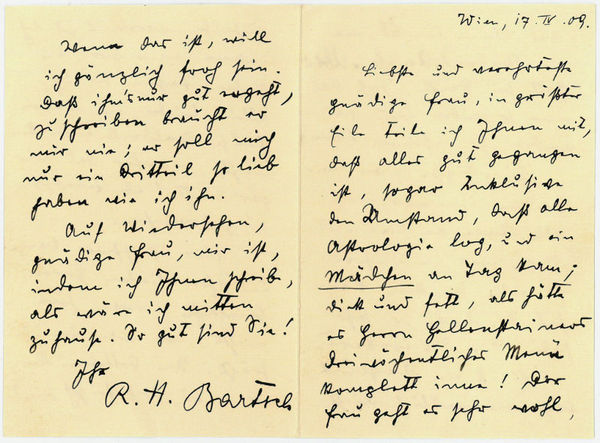 Wien, 17. IV. 09.
Liebste und verehrteste
gnädige Frau, in größter
Eile teile ich Ihnen mit,
daß alles gut gegangen
ist, sogar Inklusive
den Umstand, daß alle
Astrologie log, und ein
Mädchen an Tag kam;
dick und fett, als hätte
es Herrn Hellenstainers
dreiwöchentliches Menü
komplett inne! Der
Frau geht es sehr wohl,
Wenn das ist, will
ich gänzlich froh sein.
Daß ihm's nur gut ergeht,
zu schreiben braucht er
mir nie; er soll mich
nur ein Dritteil so lieb
haben wie ich ihn.
Auf Wiedersehen,
gnädige Frau, mir ist,
indem ich Ihnen schreibe,
als wäre ich mitten
zuhause. So gut sind Sie!
Ihr
R. H. Bartsch